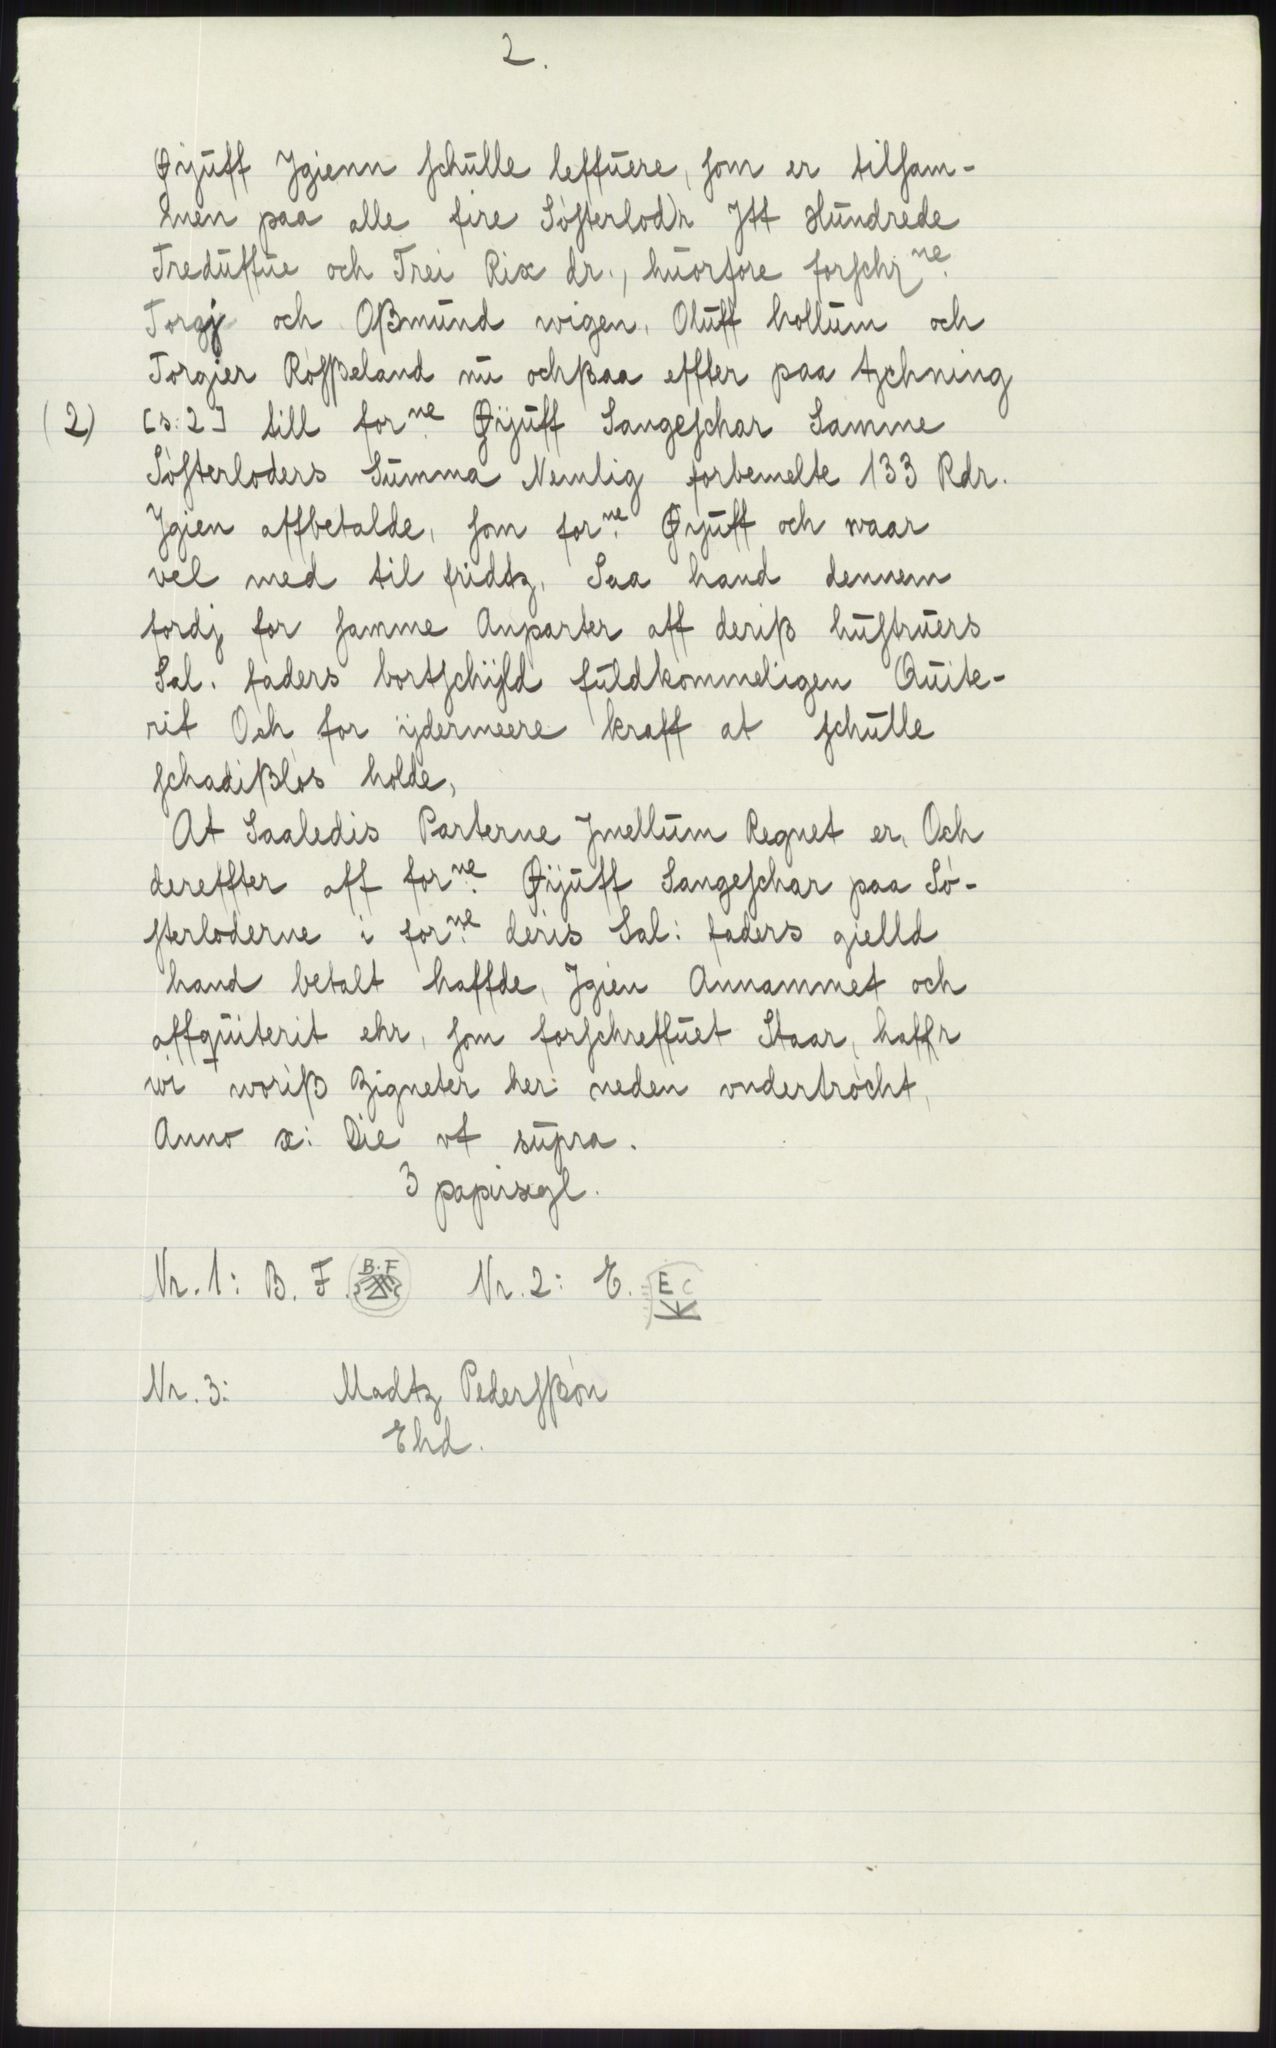 2.
Øyuff Jgienn schulle leffuere, som er tilsam-
men paa alle fire Söfterlodr Jtt Hundrede
Treduffue och Trei Rix dr., huorfore forschr ne.
Torgj och Oßmund wigen, Oluff hollum och
Torgier Rosßeland nu ochßaa effter paa tzchning
(2) [s. 2] till for ne. Øyuff Sangeschar Samme
Söfterloders Summa Nemlig forbemelte 133 Rdr.
Jgien affbetalde, som for ne. Øyuff och waar
vel med til fridtz, Saa hand dennem
fordj for samme Anparter aff deriß hustruers
Sal. faders bortschÿld fuldkommeligen Quite-
rit Och for ÿdermeere kraff at schulle
schadißlos holde,
At Saaledis Parterne Jmellum Regnet er, Och
dereffter aff for ne. Øyuff Sangeschar paa Sö-
sterloderne i for ne. deris Sal: faders gielld
hand betalt haffde, Jgien Annammet och
affquiterit ehr, som forschreffuet Staar, haffr
wi woriß Zigneter her neden vndertrócht,
Anno æ: Die vt supra.
3 papirsegl.
Nr. 1: B. F. B. F Nr. 2: E. E C
Nr. 3: Madtz Pedersßön
Ehd.